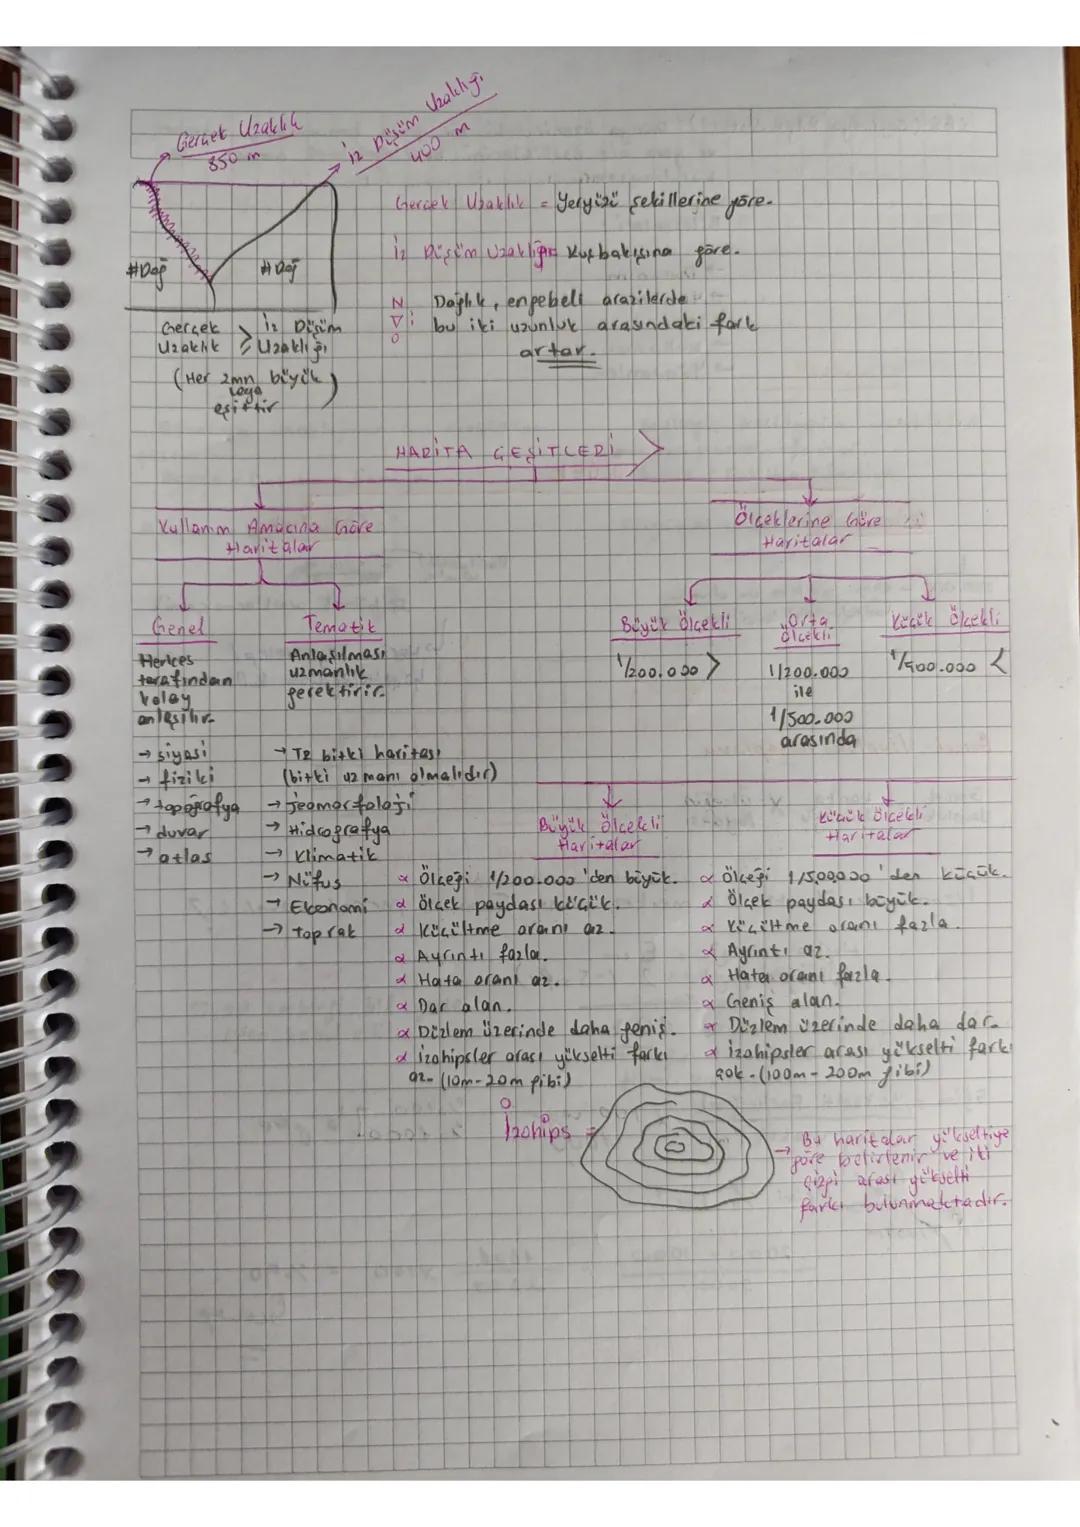 Gerçek Uzaklık
850 m
İz Düşüm Uzaklığı
400 m
Gerçek Uzaklık = Yeryüzü şekillerine göre.
İz Düşüm Uzaklığı= Kuşbakışına göre.
#Dağ
#Dağ
NOT: Dağlık, engebeli arazilerde
bu iki uzunluk arasındaki fark
artar.
Gerçek Uzaklık ≥ İz Düşüm Uzaklığı
(Her zmn büyük
veya
eşittir)
HARİTA ÇEŞİTLERİ
Kullanım Amacına Göre
Haritalar
Ölçeklerine Göre
Haritalar
Genel
Tematik
Büyük Ölçekli
Orta
ölçekli
Küçük Ölçekli
Herkes
tarafından
kolay
anlaşılır.
Anlaşılması
uzmanlık
gerektirir.
1/200.000 >
1/200.000
ile
1/500.000
arasında
1/500.000 <
→ siyasi
→ fiziki
→ topoğrafya
→ duvar
→ atlas
→ TZ bitki haritası
(bitki uzmanı olmalıdır)
→ Jeomorfoloji
→ Hidrografya
→ Klimatik
→ Nüfus
→ Ekonomi
→ toprak
Büyük Ölçekli
Haritalar
α Ölçeği 1/200.000'den büyük.
α Ölçek paydası küçük.
α Küçültme oranı az.
α Ayrıntı fazla.
α Hata oranı az.
α Dar alan.
α Düzlem üzerinde daha geniş.
α İzohipsler arası yükselti farkı
az. (10m-20m gibi)
Küçük Ölçekli
Haritalar
α Ölçeği 1/500.000'den küçük.
α Ölçek paydası büyük.
α Küçültme oranı fazla.
α Ayrıntı az.
α Hata oranı fazla.
α Geniş alan.
α Düzlem üzerinde daha dar.
α İzohipsler arası yükselti farkı
çok. (100m-200m gibi)
İzohips =
→ Bu haritalar yükseltiye
göre belirlenir ve iki
çizgi arası yükselti
farkı bulunmaktadır.